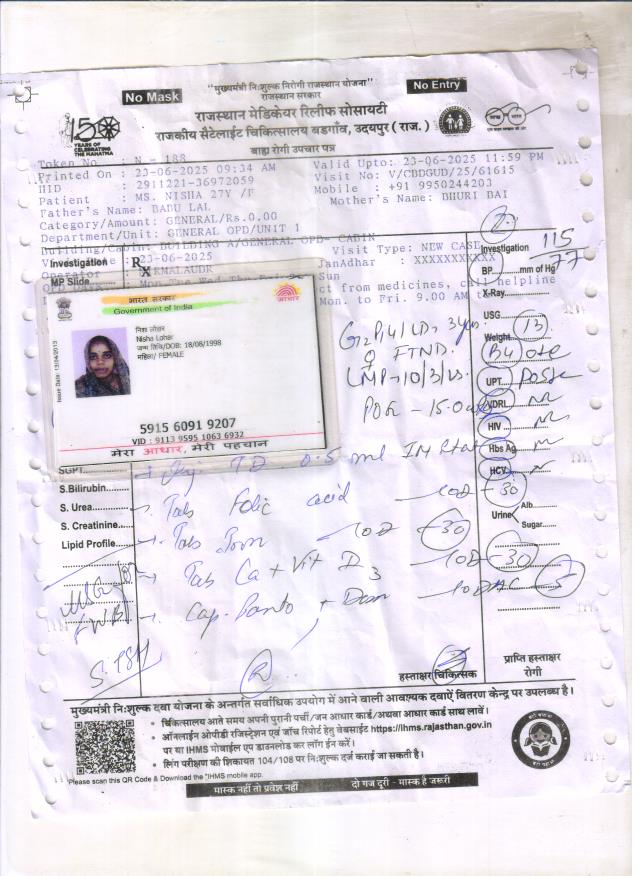 No Mask
"मुख्यमंत्री निःशुल्क निरोगी राजस्थान योजना"
No Entry
राजस्थान सरकार
राजस्थान मेडिकेयर रिलीफ सोसायटी
राजकीय सैटेलाईट चिकित्सालय बडगांव, उदयपुर ( राज. )
बाह्य रोगी उपचार पत्र
150
YEARS OF
CELEBRATING
THE MAHATMA
Token No : N - 188
Printed On : 23-06-2025 09:34 AM
Valid Upto: 23-06-2025 11:59 PM
HID : 2911221-36972059
Visit No: V/CBDGUD/25/61615
Patient : MS. NISHA 27Y /F
Mobile : +91 9950244203
Father's Name: BABU LAL
Mother's Name: BHURI BAI
Category/Amount: GENERAL/Rs.0.00
Department/Unit: GENERAL OPD/UNIT 1
Building/Cabin: BUILDING A/GENERAL OPD CABIN
Date : 23-06-2025
Visit Type: NEW CASE
JanAdhar : XXXXXXXXXXX
Sun
ct from medicines, call helpline
Mon. to Fri. 9.00 AM
Investigation
Rx
MP Slide
भारत सरकार
Government of India
आधार
Issue Date: 13/04/2013
निशा लोहार
Nisha Lohar
जन्म तिथि/DOB: 18/08/1998
महिला/ FEMALE
5915 6091 9207
VID : 9113 9595 1063 6932
मेरा आधार, मेरी पहचान
2
Investigation
115
77
BP mm of Hg
X-Ray
USG
Weight 53
UPT
VDRL
HIV
Hbs Ag
HCV
Urine
Alb.
Sugar
FTND
LMP-10/3/25
SGPT
S.Bilirubin
S. Urea
S. Creatinine
Lipid Profile
Inj TD 0.5 ml IM
Tab Folic acid 1OD - 30
Tab Iron 1OD 30
Tab Ca + Vit D3 1OD - 30
Cap. Panto + Dom 1OD AC 5
S. TSH
R
हस्ताक्षर चिकित्सक
प्राप्ति हस्ताक्षर
रोगी
मुख्यमंत्री निःशुल्क दवा योजना के अन्तर्गत सर्वाधिक उपयोग में आने वाली आवश्यक दवाऐं वितरण केन्द्र पर उपलब्ध है।
• चिकित्सालय आते समय अपनी पुरानी पर्ची/जन आधार कार्ड/अथवा आधार कार्ड साथ लावें।
• ऑनलाईन ओपीडी रजिस्ट्रेशन एवं जाँच रिपोर्ट हेतु वेबसाईट https://ihms.rajasthan.gov.in
पर या IHMS मोबाईल एप डाउनलोड कर लॉग ईन करें।
• लिंग परीक्षण की शिकायत 104/108 पर निःशुल्क दर्ज कराई जा सकती है।
Please scan this QR Code & Download the "IHMS mobile app.
मास्क नहीं तो प्रवेश नहीं
दो गज दूरी - मास्क है जरूरी